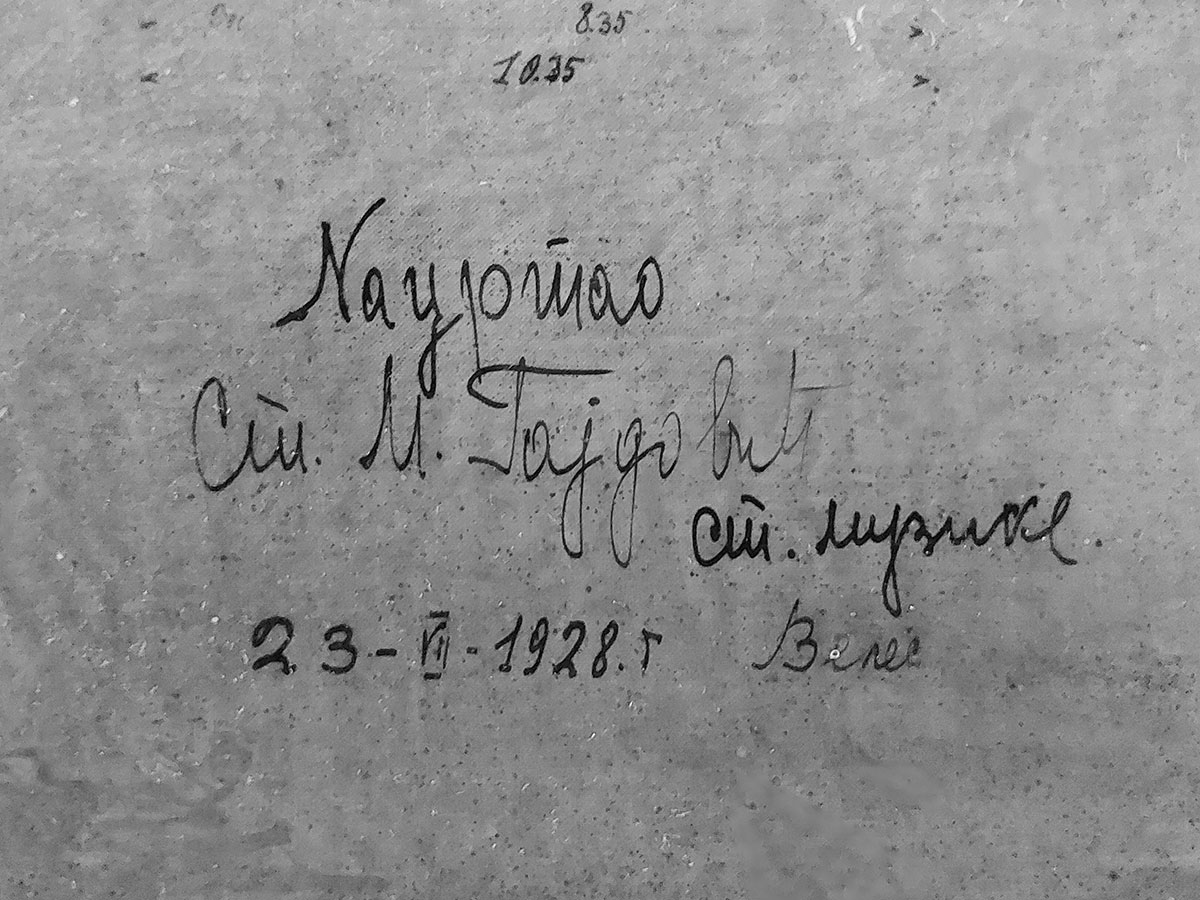 8.35
10.35
Нацртао
Ст. М. Гајдовић
ст. музике.
23-VII-1928.г Велес